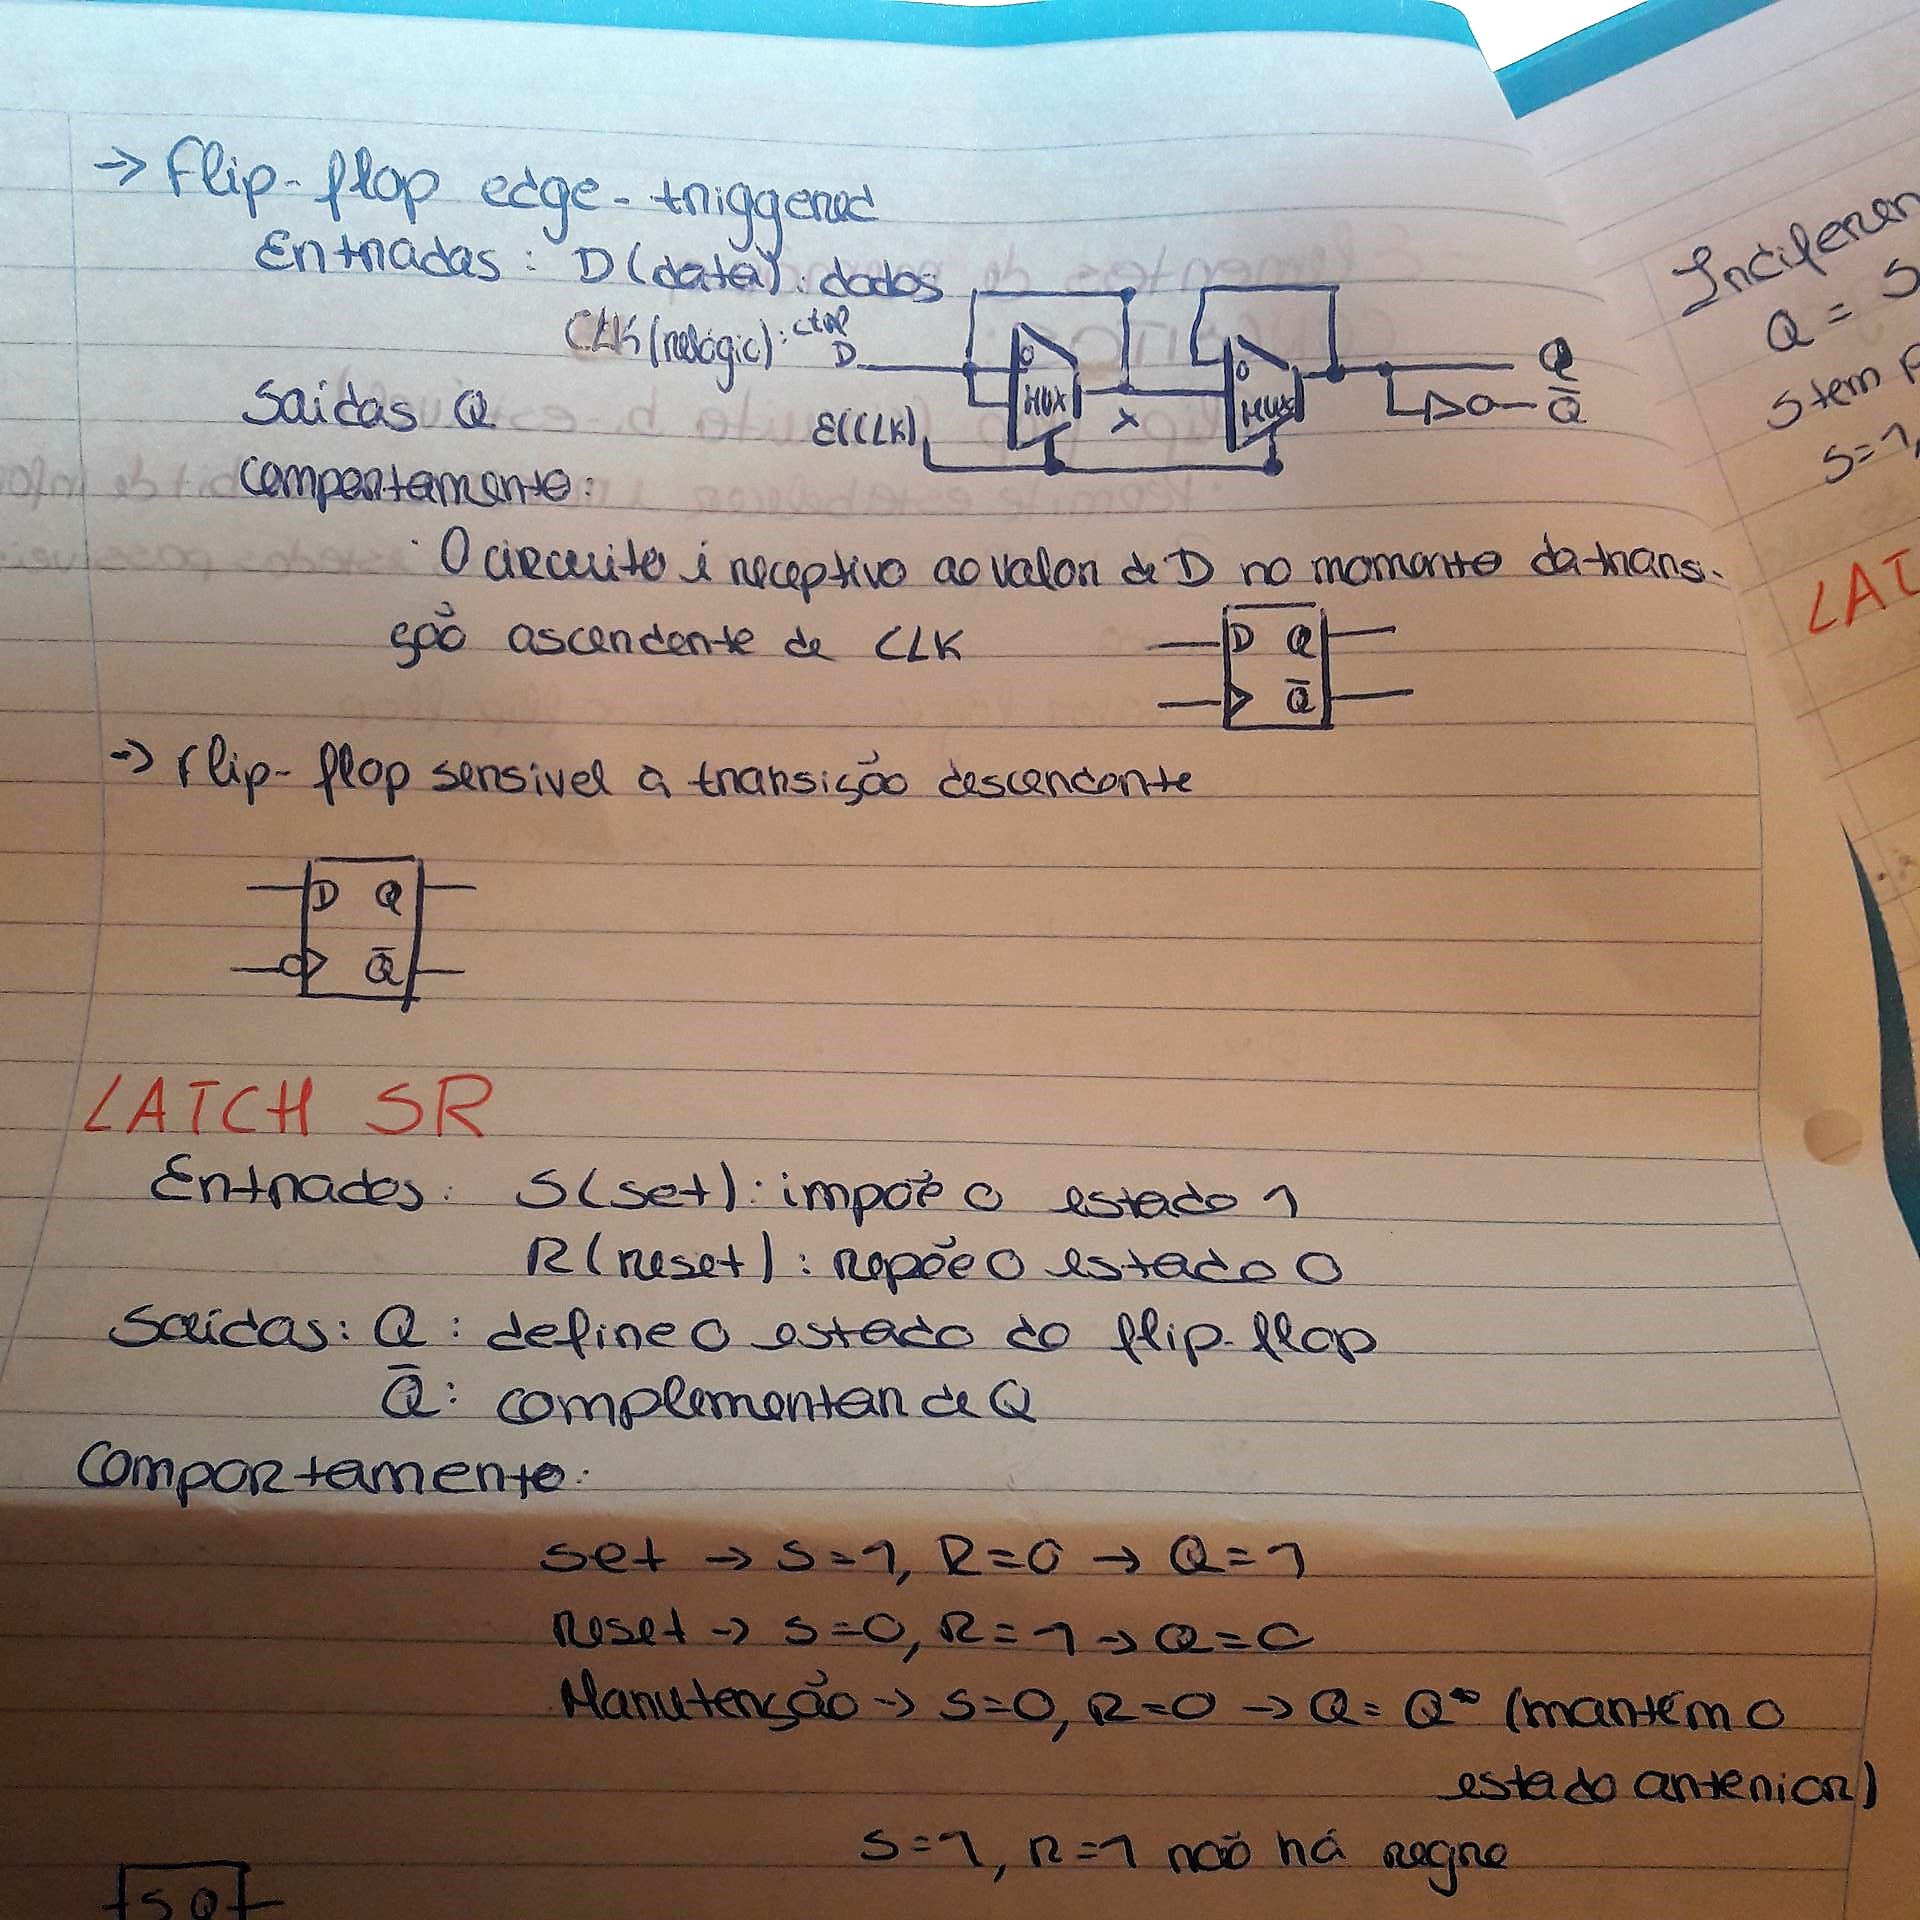 → Flip-flop edge-triggered
Entradas: D(data): dados
CLK(relógio): ctrp
D
0
MUX
0
MUX
Q
Q̅
E(CLK)
X
Saídas Q
Comportamento:
· O circuito é receptivo ao valor de D no momento da transi-
ção ascendente de CLK
D Q
Q̅
→ Flip-flop sensivel a transição descendente
D Q
Q̅
LATCH SR
Entradas: S(set): impõe o estado 1
R(reset): repõe o estado 0
Saídas: Q: define o estado do flip-flop
Q̅: complementar de Q
Comportamento:
set → S=1, R=0 → Q=1
reset → S=0, R=1 → Q=0
Manutenção → S=0, R=0 → Q= Q* (mantém o
estado anterior)
S=1, R=1 não há regra
S Q
Indiferen
Q = S
S tem p
S=1,
LAT